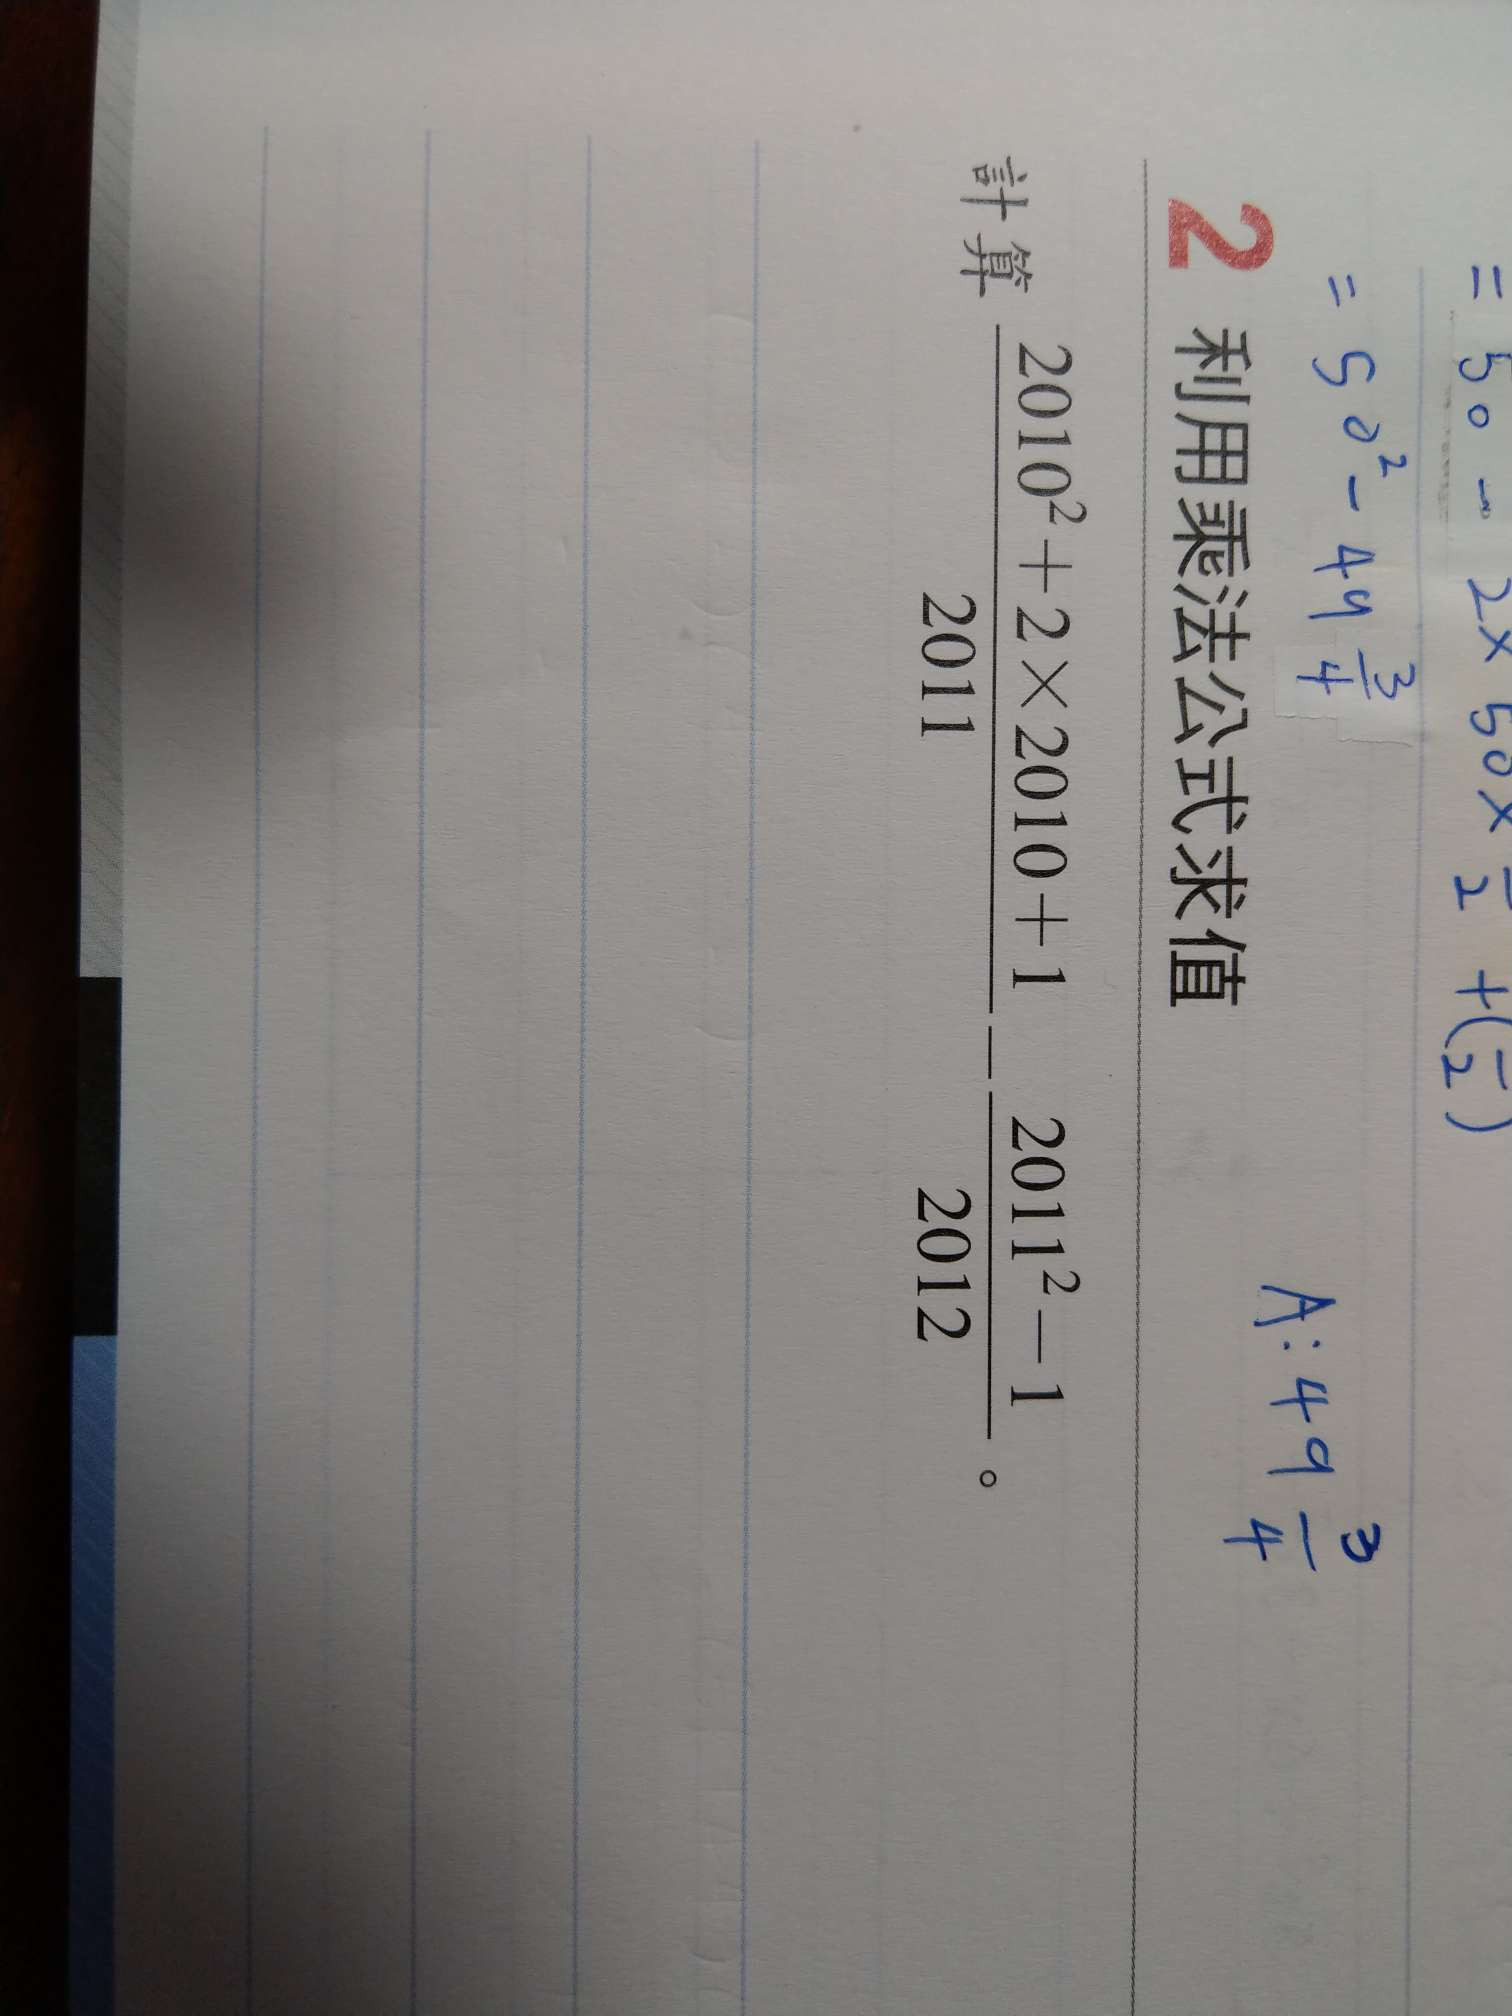 = 50 - 2×50×  2 + ( 2 )
= 50² - 49 3/4
A: 49 3/4
2 利用乘法公式求值
計算 (2010²+2×2010+1)/2011 − (2011²−1)/2012 。